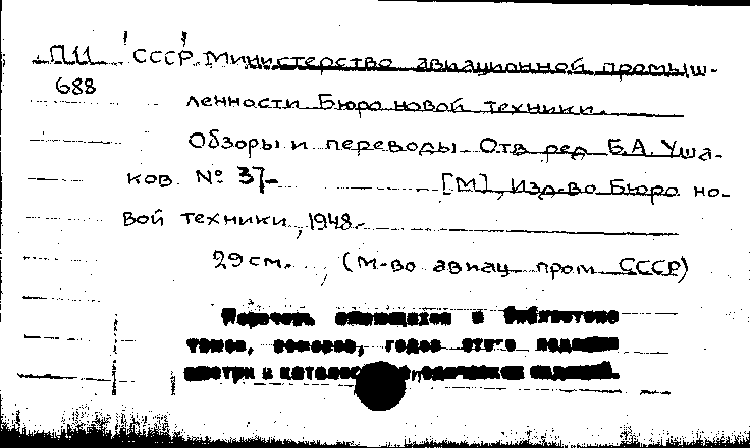 П11 СССР. Министерство авиационной промыш-
688
ленности Бюро новой техники.
Обзоры и переводы Отв ред Б.А. Уша-
ков. № 37- [М], Изд-во Бюро но-
вой техники, 1948-
29см. (М-во авиац пром СССР)
Перечень имеющихся в библиотеке
томов, номеров, годов этого издания
смотри в каталоге периодических изданий.